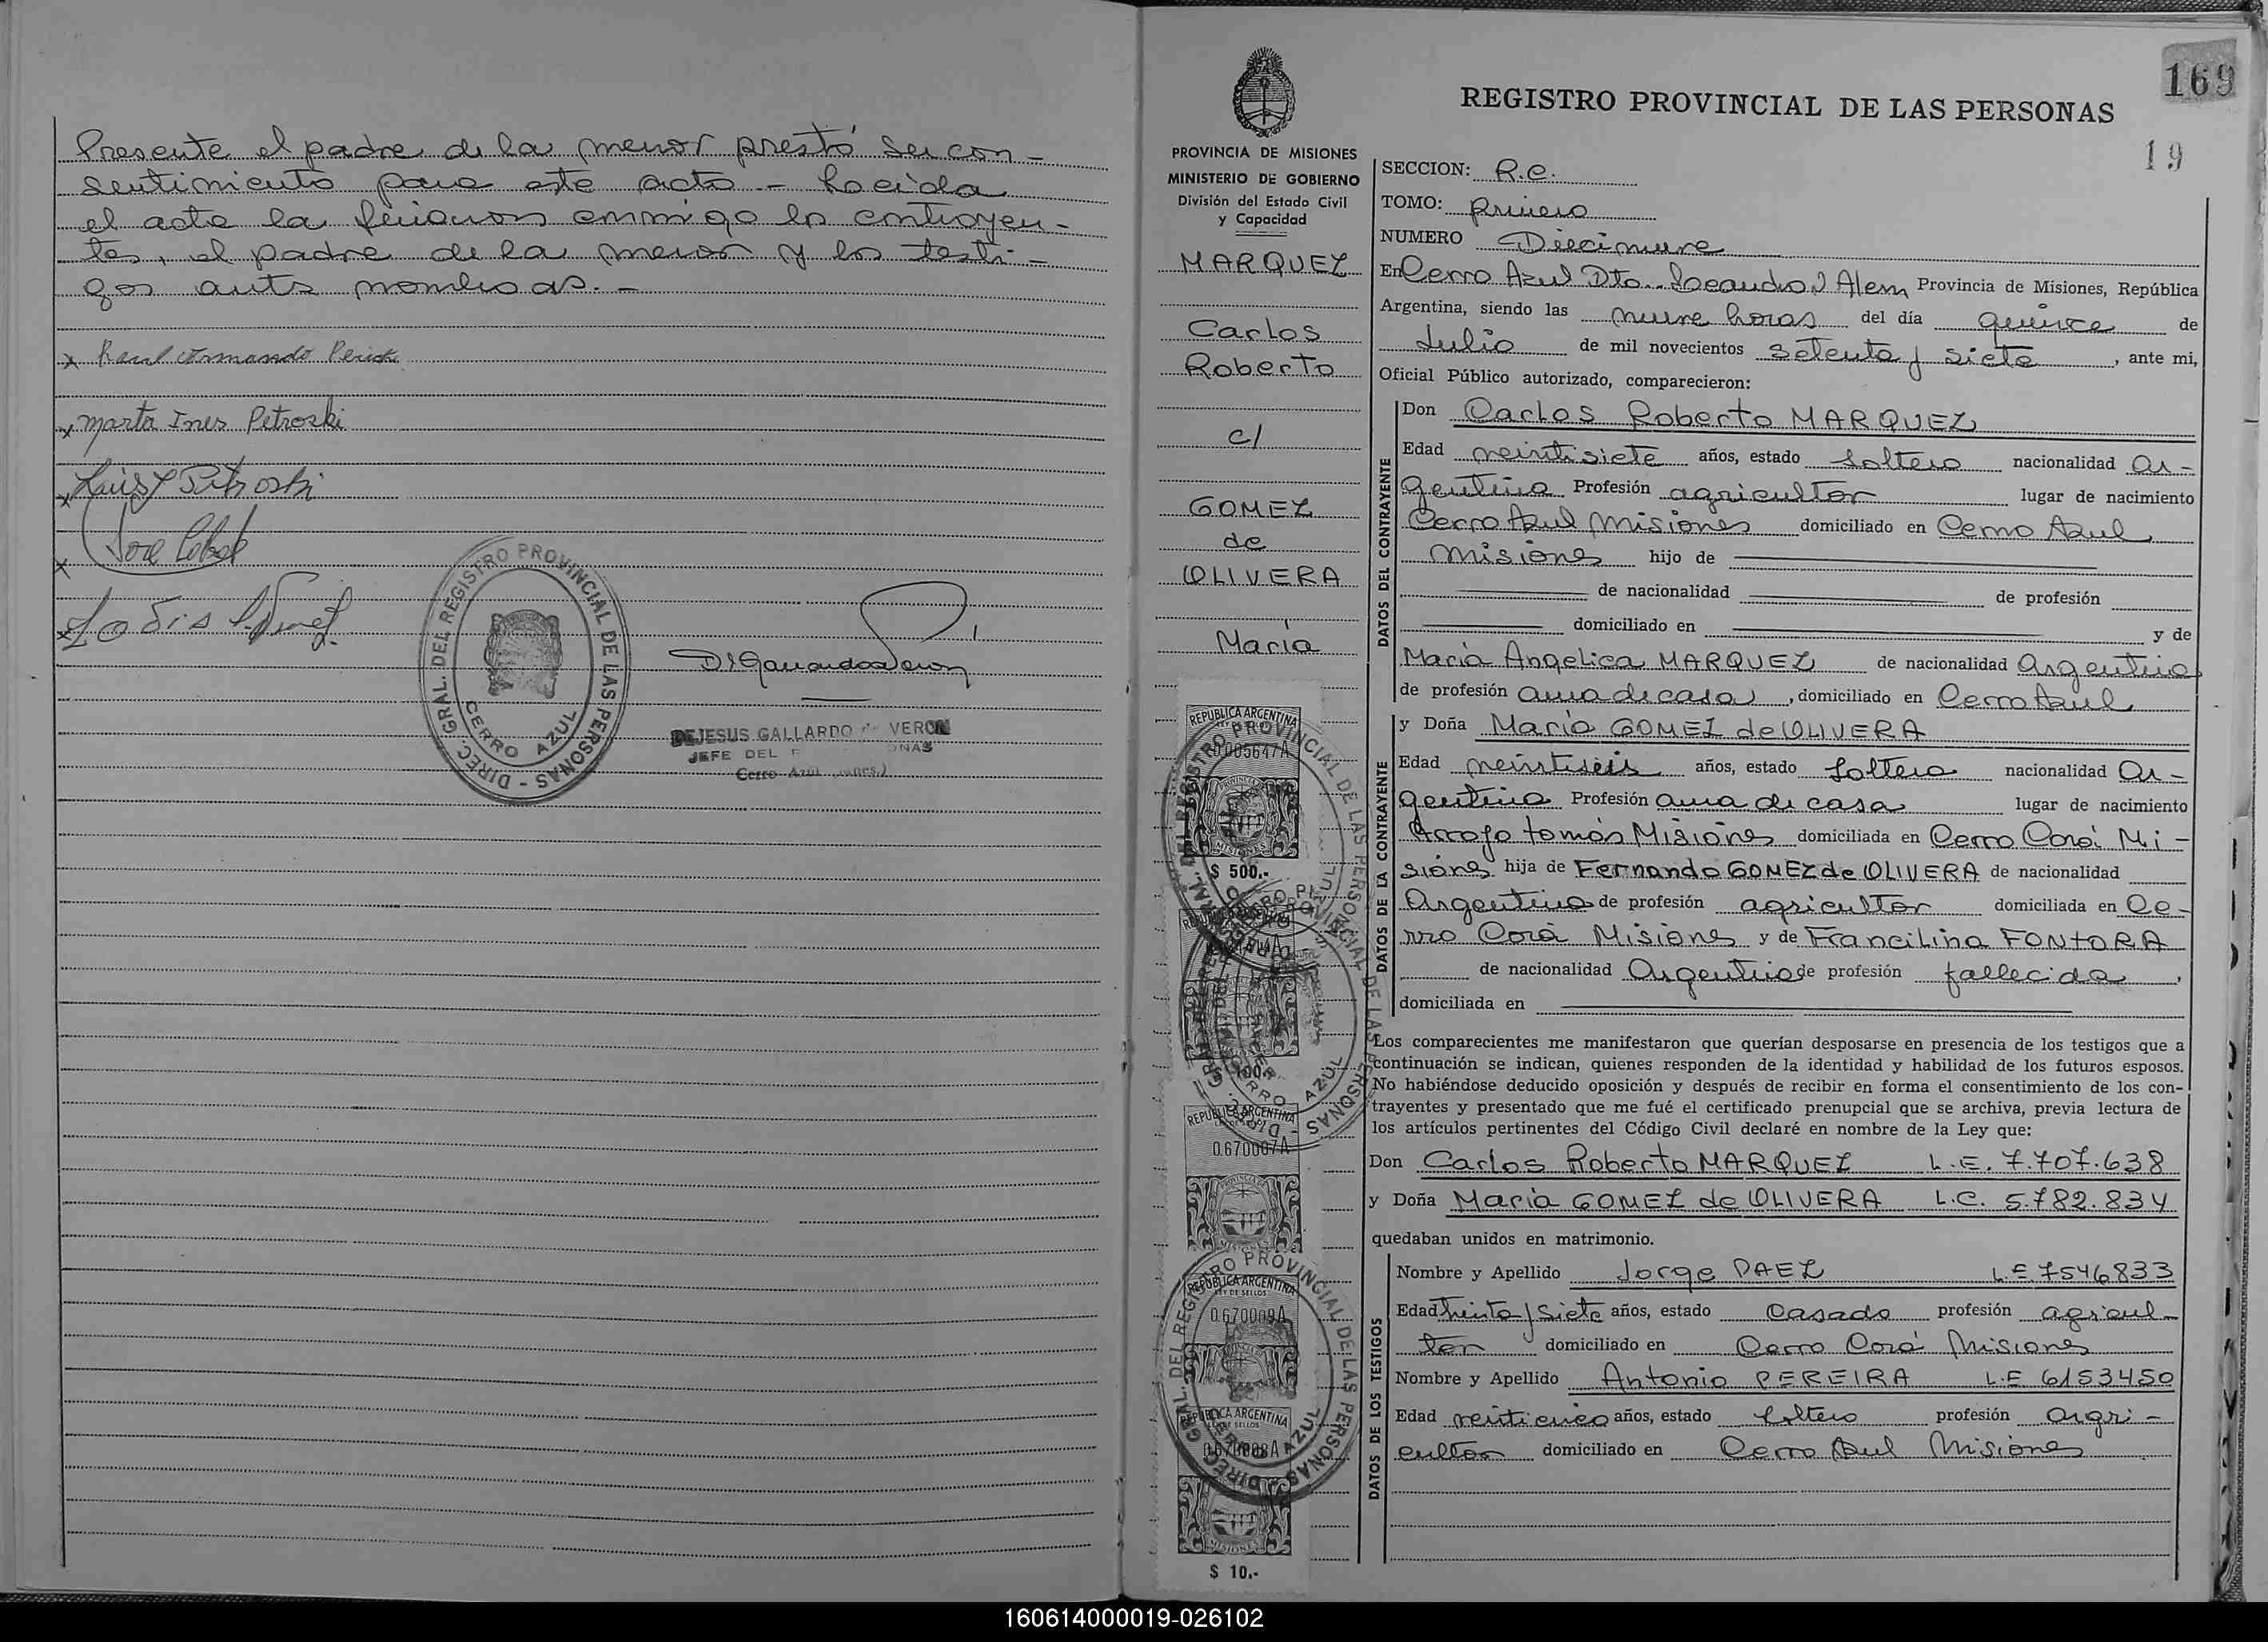 Presente el padre de la menor prestó su con-
sentimiento para este acto - Leída
el acta la firmaron conmigo los contrayen-
tes, el padre de la menor y los testi-
gos antes nombrados. -
x Raul Armando
x Marta Ines Petroski
x Luis Petroski
x Jose
x
DEJESUS GALLARDO de VERON
JEFE DEL
Cerro Azul
DIREC. GRAL. DEL REGISTRO PROVINCIAL DE LAS PERSONAS -
CERRO AZUL
169
REGISTRO PROVINCIAL DE LAS PERSONAS
19
PROVINCIA DE MISIONES
MINISTERIO DE GOBIERNO
División del Estado Civil
y Capacidad
MARQUEZ
Carlos
Roberto
c/
GOMEZ
de
OLIVERA
María
REPUBLICA ARGENTINA
0005647A
MISIONES
$ 500.-
$ 100.-
REPUBLICA ARGENTINA
0.670007A
REPUBLICA ARGENTINA
LEY DE SELLOS
0.670009A
REPUBLICA ARGENTINA
0.670008A
MISIONES
$ 10.-
SECCION: R.C.
TOMO: primero
NUMERO Diecinueve
En Cerro Azul Dto. Leandro N Alem Provincia de Misiones, República
Argentina, siendo las nueve horas del día quince de
Julio de mil novecientos setenta y siete, ante mi,
Oficial Público autorizado, comparecieron:
DATOS DEL CONTRAYENTE
Don Carlos Roberto MARQUEZ
Edad veintisiete años, estado soltero nacionalidad Ar-
gentina Profesión agricultor lugar de nacimiento
Cerro Azul Misiones domiciliado en Cerro Azul
Misiones hijo de
de nacionalidad de profesión
domiciliado en y de
María Angelica MARQUEZ de nacionalidad Argentina
de profesión ama de casa, domiciliado en Cerro Azul
DATOS DE LA CONTRAYENTE
y Doña María GOMEZ de OLIVERA
Edad veintiseis años, estado soltera nacionalidad Ar-
gentina Profesión ama de casa lugar de nacimiento
Arroyo tomás Misiones domiciliada en Cerro Corá Mi-
siones hija de Fernando GOMEZ de OLIVERA de nacionalidad
Argentina de profesión agricultor domiciliada en Ce-
rro Corá Misiones y de Francilina FONTORA
de nacionalidad Argentina de profesión fallecida,
domiciliada en
Los comparecientes me manifestaron que querían desposarse en presencia de los testigos que a
continuación se indican, quienes responden de la identidad y habilidad de los futuros esposos.
No habiéndose deducido oposición y después de recibir en forma el consentimiento de los con-
trayentes y presentado que me fué el certificado prenupcial que se archiva, previa lectura de
los artículos pertinentes del Código Civil declaré en nombre de la Ley que:
Don Carlos Roberto MARQUEZ L.E. 7.707.638
y Doña María GOMEZ de OLIVERA L.C. 5.782.834
quedaban unidos en matrimonio.
DATOS DE LOS TESTIGOS
Nombre y Apellido Jorge PAEZ L.E. 7546833
Edad treinta y siete años, estado casado profesión agricul-
tor domiciliado en Cerro Corá Misiones
Nombre y Apellido Antonio PEREIRA L.E 6153450
Edad veinticinco años, estado soltero profesión agri-
cultor domiciliado en Cerro Azul Misiones
160614000019-026102